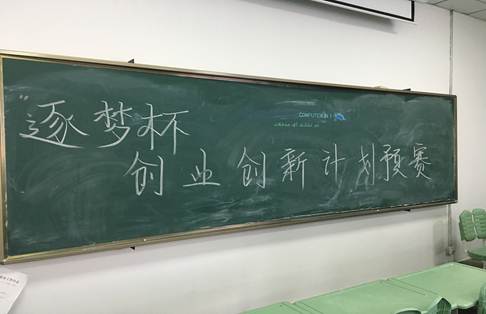 “逐梦杯
创业创新计划预赛